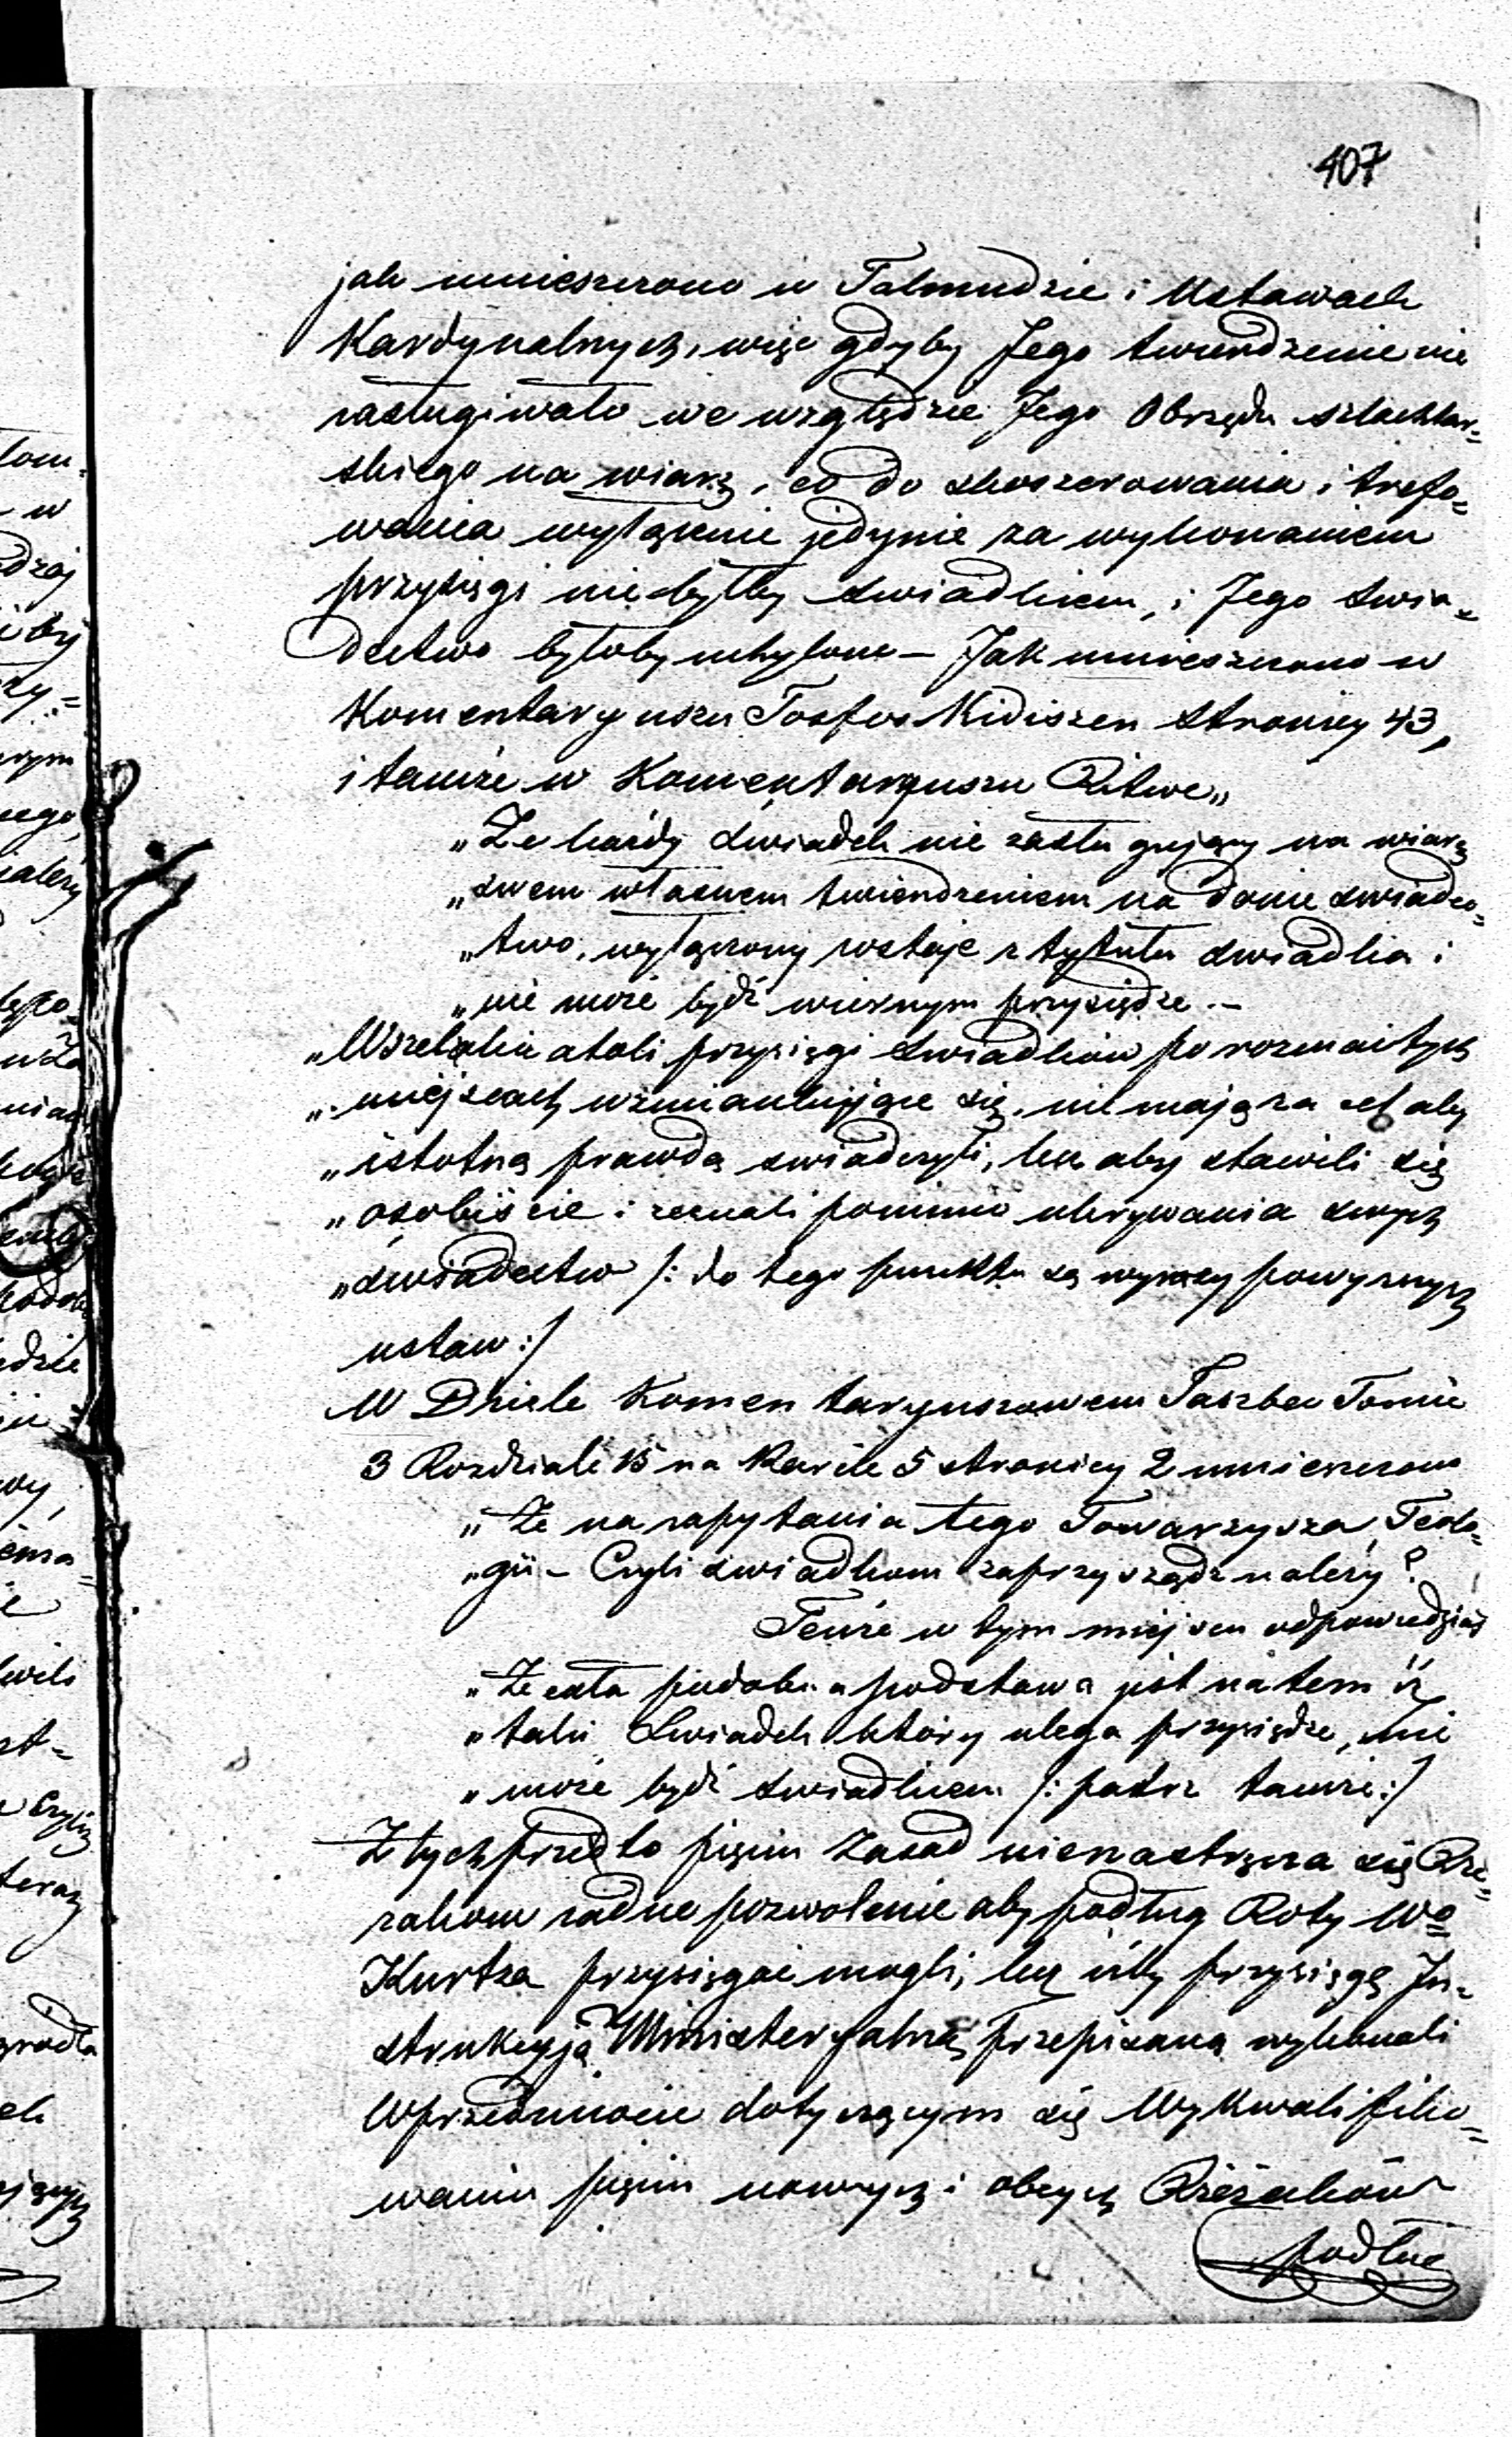 407
jak umieszczono w Talmudzie i Ustawach
Kardynalnych, więc gdyby Jego twierdzenie nie
zasługiwało we względzie Jego Obrzędu szlachtar=
skiego na wiarę, co do skoszerowania i trefo=
wania wyłącznie jedynie za wykonaniem
przysięgi nie byłby swiadkiem, i Jego swia=
dectwo byłoby uchylone – Jak umieszczono w
Komentaryuszu Tosfos Kidiszen stronicy 43,
i tamże w Komentaryuszu Ritwe„
„Że każdy swiadek nie zasługujący na wiarę
„swem własnem twierdzeniem na danie swiadec=
„two, wyłączony zostaje z tytułu swiadka i
„nie może bydź wiernym przysiędze. –
„Wszelakie atoli przysięgi swiadków po rozmaitych
„miejscach wzmiankujące się, nie mają za cel aby
„istotną prawdę swiadczyli, lecz aby stawili się
„osobiście i zeznali pomimo ukrywania swych
„swiadectw /: do tego punktu są wyrazy powyższych
ustaw :/
W Dziele Komentaryuszowem Taszbec Tomie
3 Rozdziale 15 na Karcie 5 stronicy 2 umieszczono
„Że na zapytania tego Towarzysza Teolo=
„gii – Czyli swiadkom zaprzysządz należy?
Tenże w tym miejscu odpowiedział
„Że cała podobna podstawa jest na tem iż
„taki Swiadek który ulega przysiędze, nie
„może bydź swiadkiem /: patrz tamże :/
Z tych przeto pięciu Zasad nienastręcza się Rze=
zakom żadne pozwolenie aby podług Roty Wo
Kurtza przysięgać mogli, lecz iżby przysięgę In=
strukcyją Ministeryalną przepisaną wykonali
W przedmiocie dotyczącym się Wykwalifiko=
waniu pięciu nowych i obcych Rzezaków
podług